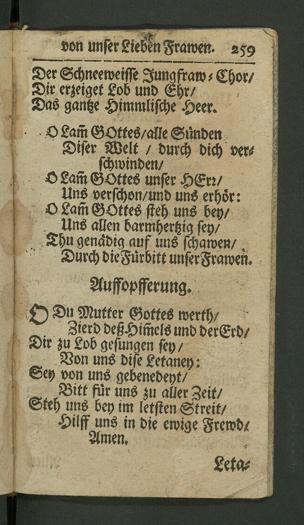 von unser Lieben Frawen. 259
Der Schneeweisse Jungfraw-Chor/
Dir erzeiget Lob und Ehr/
Das gantze Himmlische Heer.
O Lam̃ GOttes/alle Sünden
Diser Welt / durch dich ver-
schwinden/
O Lam̃ GOttes unser HErr/
Uns verschon/und uns erhör:
O Lam̃ GOttes steh uns bey/
Uns allen barmhertzig sey/
Thu genädig auf uns schawen/
Durch die Fürbitt unser Frawen.
Auffopfferung.
O Du Mutter Gottes werth/
Zierd deß Him̃els und der Erd/
Dir zu Lob gesungen sey/
Von uns dise Letaney:
Sey von uns gebenedeyt/
Bitt für uns zu aller Zeit/
Steh uns bey im letsten Streit/
Hilff uns in die ewige Frewd/
Amen.
Leta-